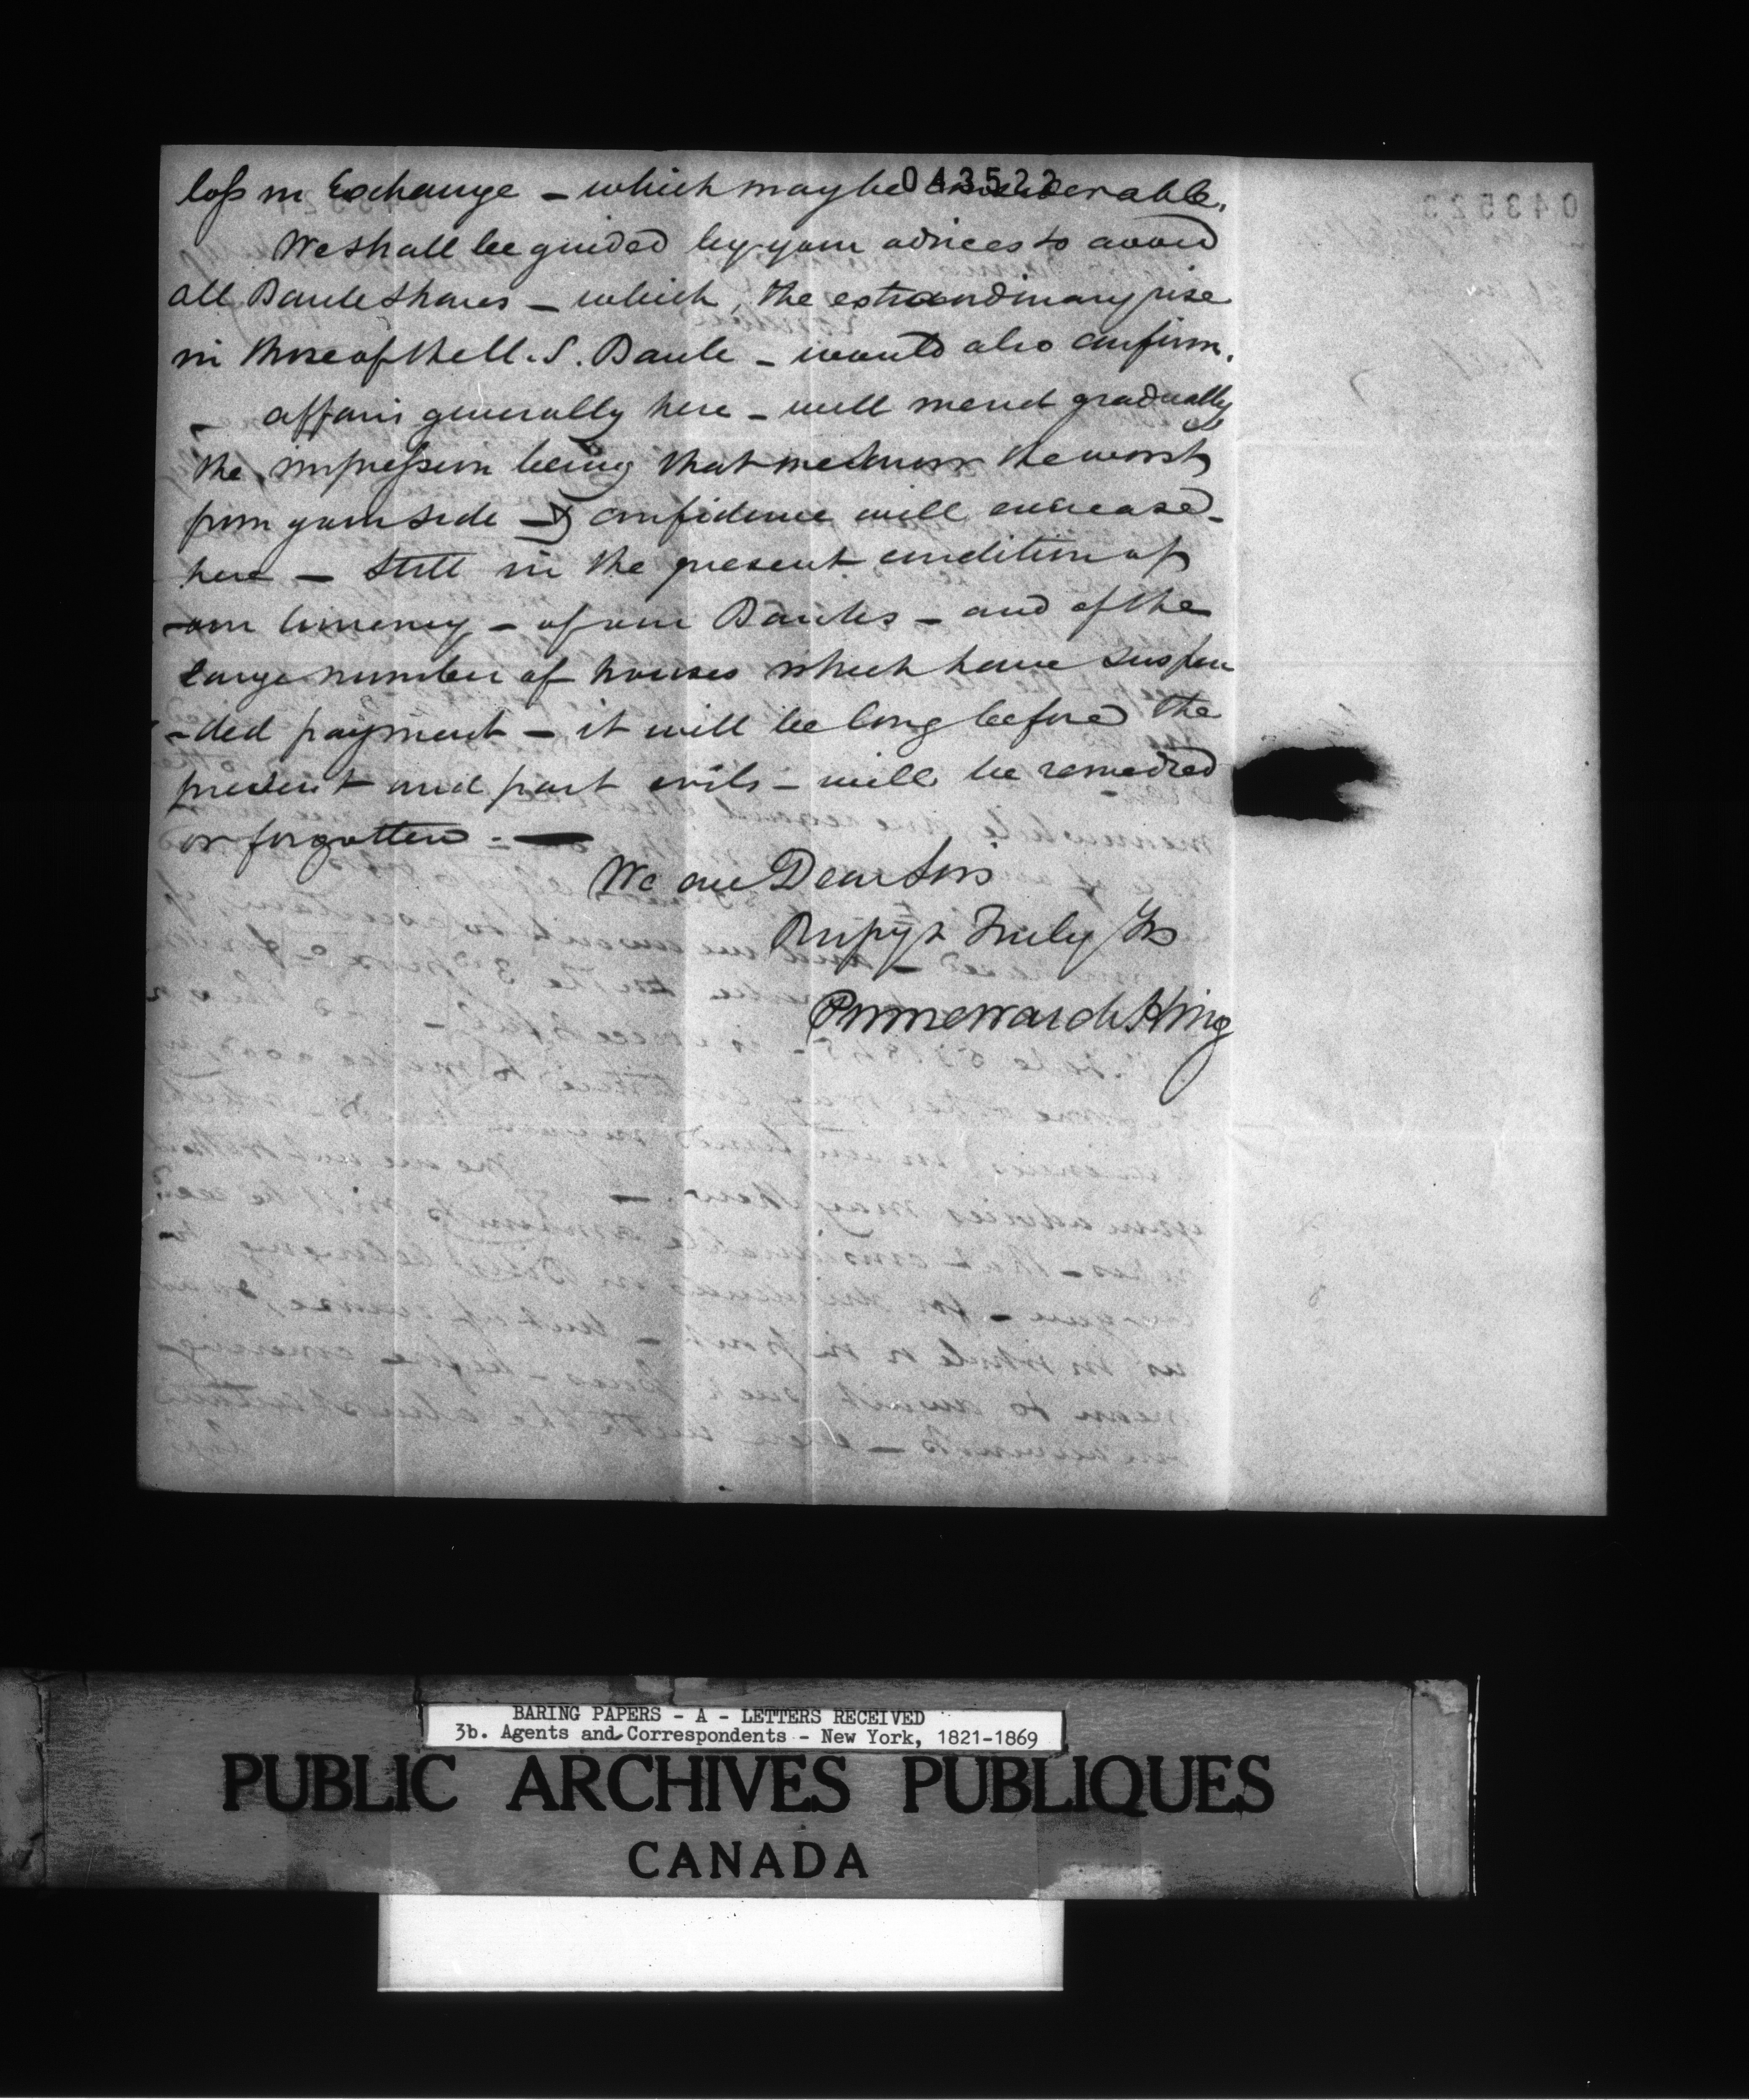 043522
loss in Exchange - which may be considerable.
We shall be guided by your advices to avoid
all Bank Shares - which, the extraordinary rise
in those of the U. S. Bank - would also confirm.
- affairs generally here - will mend gradually
the impression being that we know the worst
from your side - & confidence will encrease
here - Still in the present condition of
our Currency - of our Banks - and of the
large number of houses which have suspen
-ded payment - it will be long before the
present and past evils - will be remedied
or forgotten. -
We are Dear Sirs
Respy & Truly Yrs
Prime Ward & King
043523
BARING PAPERS - A - LETTERS RECEIVED
3b. Agents and Correspondents - New York, 1821-1869
PUBLIC ARCHIVES PUBLIQUES
CANADA